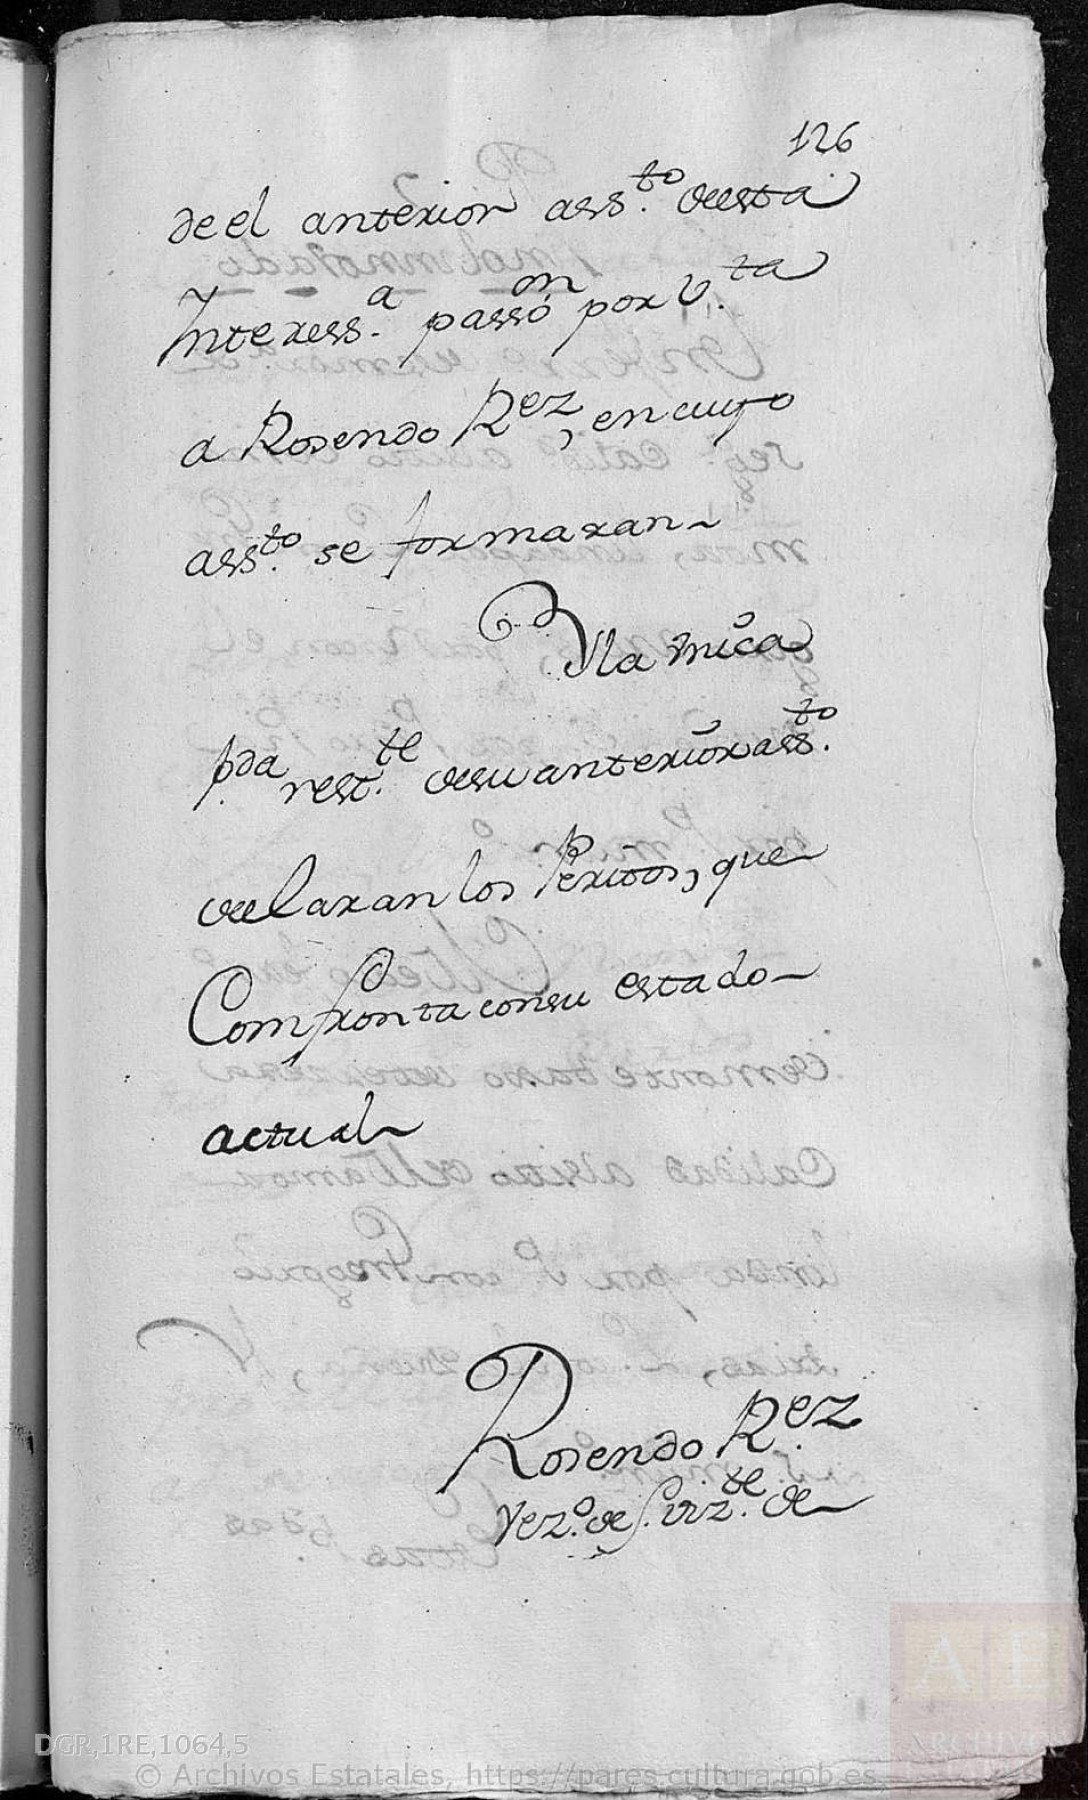 126
de el anterior ass.to de esta
Interess.a passó por v.ta
a Rosendo Rez, en cuyo
ass.to se formaran
Y la unica
p.da rest.te de su anterior ass.to
declaran los Peritos, que
Comfronta con su estado
actual
Rosendo Rez
Vez.o de S. Viz.te de
DGR,1RE,1064,5
© Archivos Estatales, https://pares.cultura.gob.es
AE
ARCHIVOS